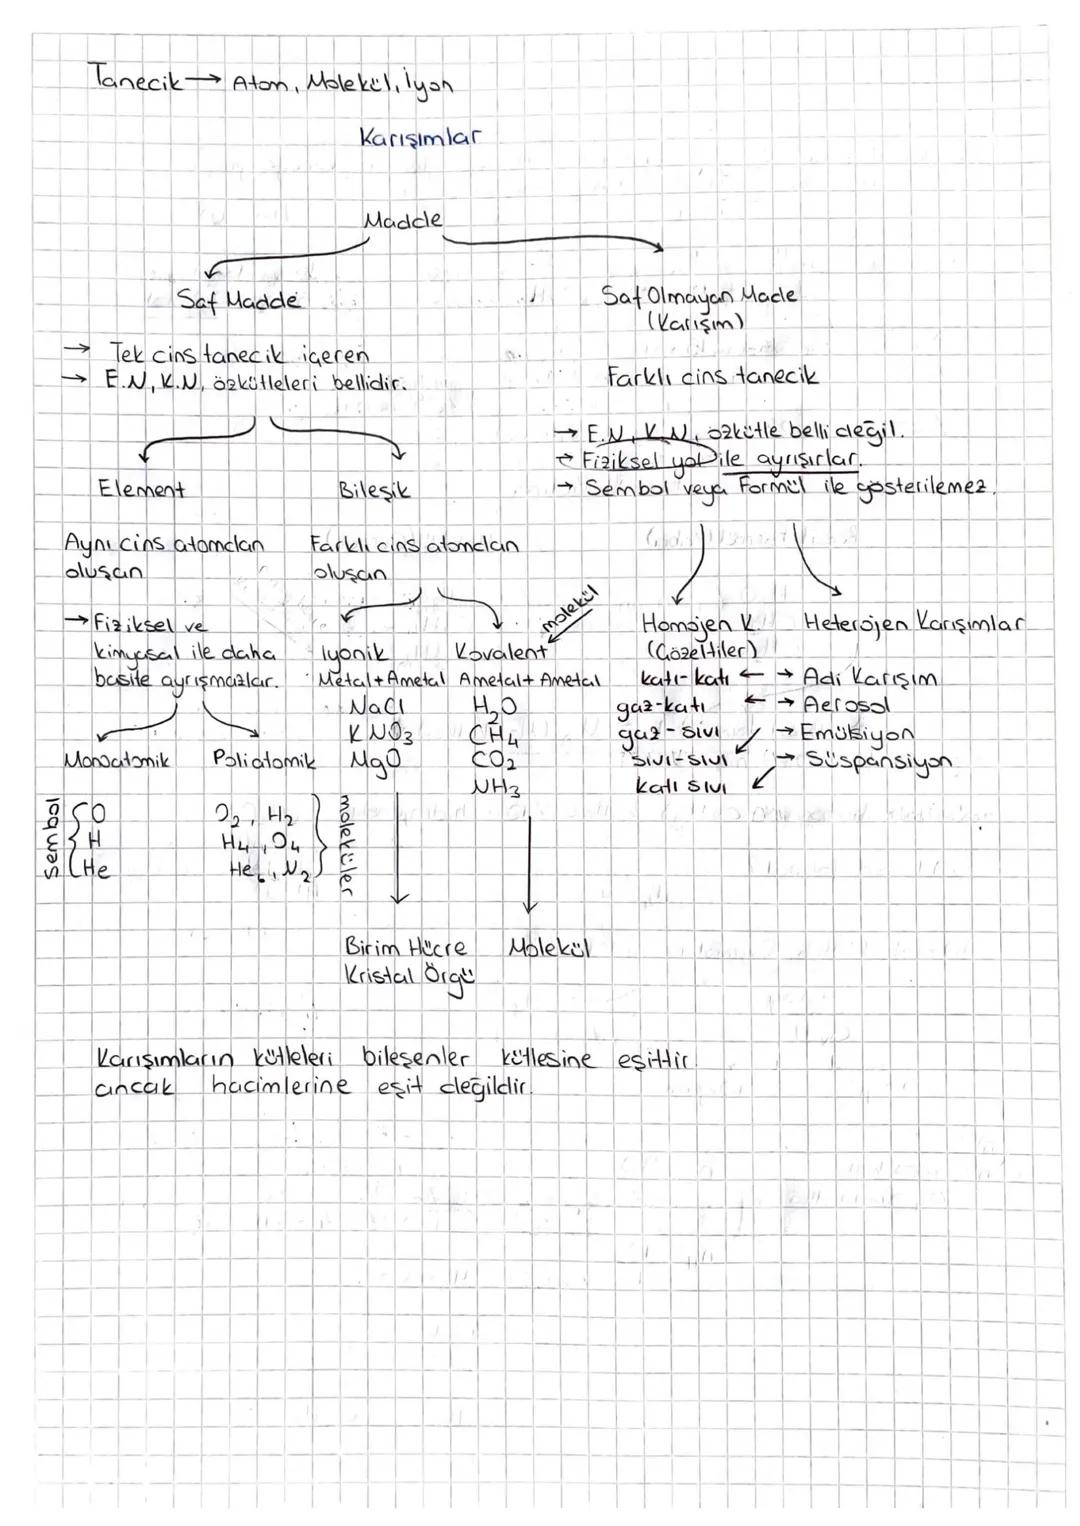 Tanecik → Atom, Molekül, İyon
Karışımlar
Madde
Saf Madde
→ Tek cins tanecik içeren
→ E.N, K.N, özkütleleri bellidir.
Element
Aynı cins atomdan
oluşan
→ Fiziksel ve
kimyasal ile daha
basite ayrışmazlar.
Monoatomik
Sembol
O
H
He
Poliatomik
O₂, H₂
H₄, O₄
He₆, N₂
moleküler
Bileşik
Farklı cins atomdan
oluşan
İyonik
Metal + Ametal
NaCl
KNO₃
MgO
Birim Hücre
Kristal Örgü
molekül
Kovalent
Ametal + Ametal
H₂O
CH₄
CO₂
NH₃
Molekül
Saf Olmayan Made
(Karışım)
Farklı cins tanecik
→ E.N, K.N, özkütle belli değil.
→ Fiziksel yol ile ayrışırlar.
→ Sembol veya Formül ile gösterilemez.
Homojen K.
(Çözeltiler)
katı-katı
gaz-katı
gaz-sıvı
sıvı-sıvı
katı sıvı
Heterojen Karışımlar
← → Adi Karışım
← → Aerosol
→ Emülsiyon
→ Süspansiyon
Karışımların kütleleri bileşenler kütlesine eşittir.
ancak hacimlerine eşit değildir.